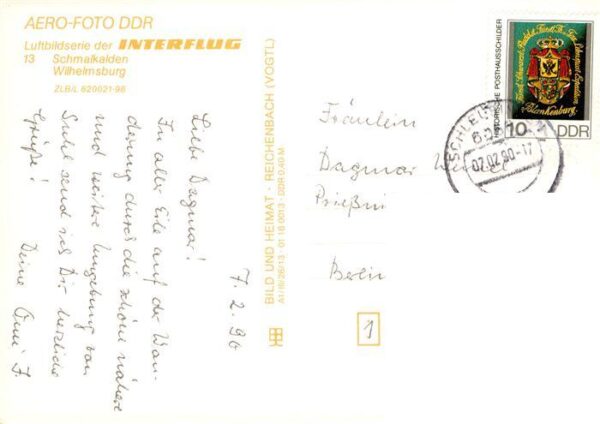 AERO-FOTO DDR
Luftbildserie der INTERFLUG
13 Schmalkalden
Wilhelmsburg
ZLB/L 620021-96
7. 2. 90
Liebe Dagmar!
In aller Eile auf der Wan-
derung durch die schöne nähere
und weitere Umgebung von
Suhl send ich Dir herzliche
Grüße!
Deine Omi F.
BILD UND HEIMAT · REICHENBACH (VOGTL)
A1/III/26/13 01 16 0013 · DDR 0,40 M
HISTORISCHE POSTHAUSSCHILDER
Blankenburg.
10 DDR
SCHLEU
07.02.90-17
Fräulein
Dagmar
Berlin
1